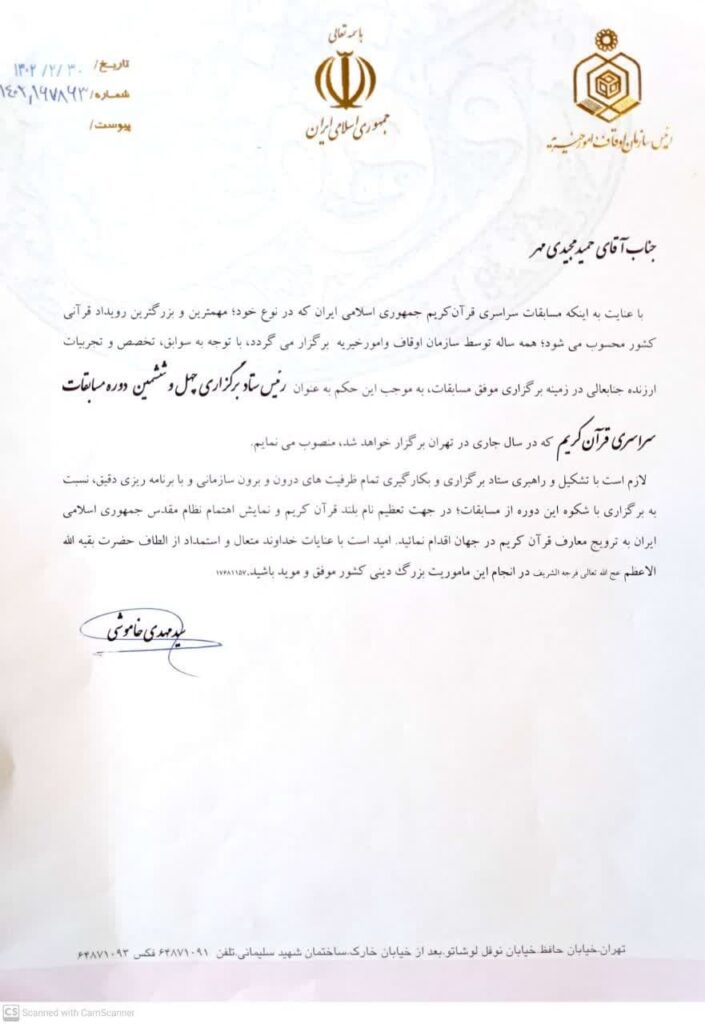 باسمه تعالی
جمهوری اسلامی ایران
رئیس سازمان اوقاف و امور خیریه
تاریخ/ ۱۴۰۲/۲/۳۰
شماره/ ۱۴۰۲,۱۹۷۸۹۳
پیوست/
جناب آقای حمید مجیدی مهر
با عنایت به اینکه مسابقات سراسری قرآن‌کریم جمهوری اسلامی ایران که در نوع خود؛ مهمترین و بزرگترین رویداد قرآنی
کشور محسوب می شود؛ همه ساله توسط سازمان اوقاف وامورخیریه برگزار می گردد، با توجه به سوابق، تخصص و تجربیات
ارزنده جنابعالی در زمینه برگزاری موفق مسابقات، به موجب این حکم به عنوان رئیس ستاد برگزاری چهل و ششمین دوره مسابقات
سراسری قرآن کریم که در سال جاری در تهران برگزار خواهد شد، منصوب می نمایم.
لازم است با تشکیل و راهبری ستاد برگزاری و بکارگیری تمام ظرفیت های درون و برون سازمانی و با برنامه ریزی دقیق، نسبت
به برگزاری با شکوه این دوره از مسابقات؛ در جهت تعظیم نام بلند قرآن کریم و نمایش اهتمام نظام مقدس جمهوری اسلامی
ایران به ترویج معارف قرآن کریم در جهان اقدام نمائید. امید است با عنایات خداوند متعال و استمداد از الطاف حضرت بقیه الله
الاعظم عج الله تعالی فرجه الشریف در انجام این ماموریت بزرگ دینی کشور موفق و موید باشید.۱۷۶۸۱۱۵۷
سید مهدی خاموشی
تهران.خیابان حافظ.خیابان نوفل لوشاتو.بعد از خیابان خارک.ساختمان شهید سلیمانی.تلفن ۶۴۸۷۱۰۹۱ فکس ۶۴۸۷۱۰۹۳
CS Scanned with CamScanner